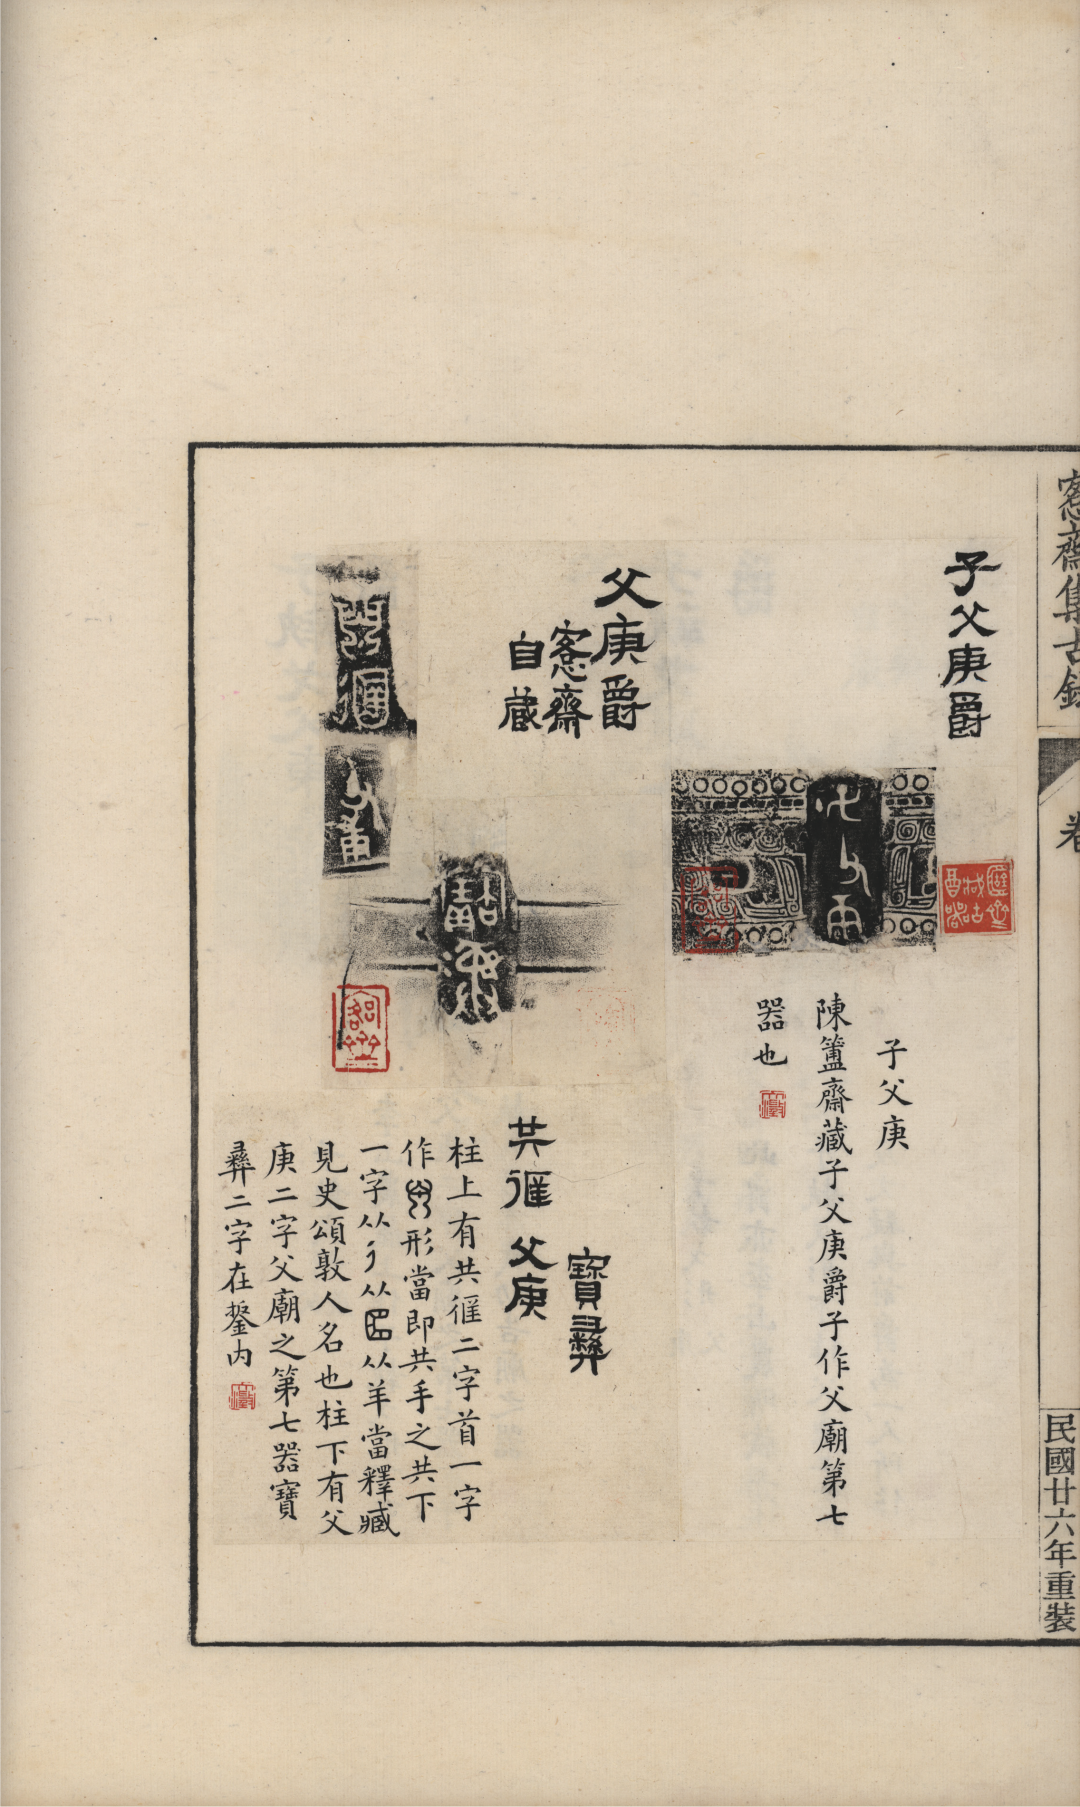 愙齋集古錄
卷
民國廿六年重裝
子父庚爵
子父庚
陳簠齋藏子父庚爵子作父廟第七
器也
父庚爵
愙齋
自藏
寶彝
共㒷 父庚
柱上有共㒷二字首一字
作形當即共手之共下
一字从彳从𦣞从羊當釋臧
見史頌敦人名也柱下有父
庚二字父廟之第七器寶
彝二字在鋬内